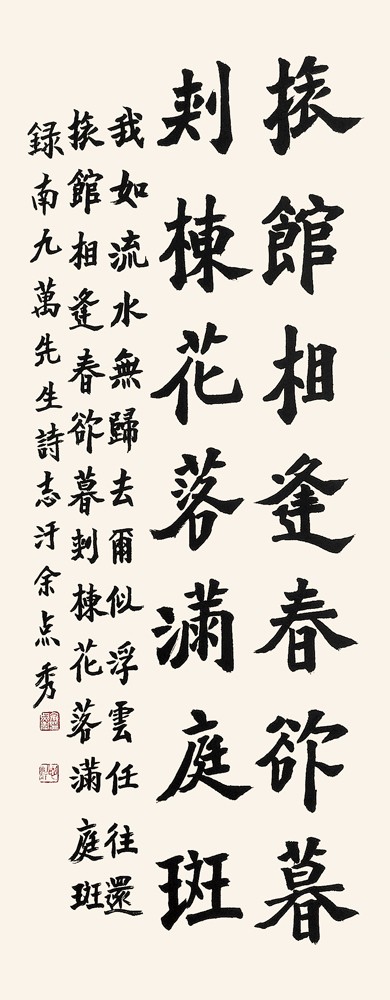 捬館相逢春欲暮
刺棟花落滿庭斑
我如流水無歸去爾似浮雲任往還
捬館相逢春欲暮刺棟花落滿庭斑
録南九萬先生詩志汙余点秀